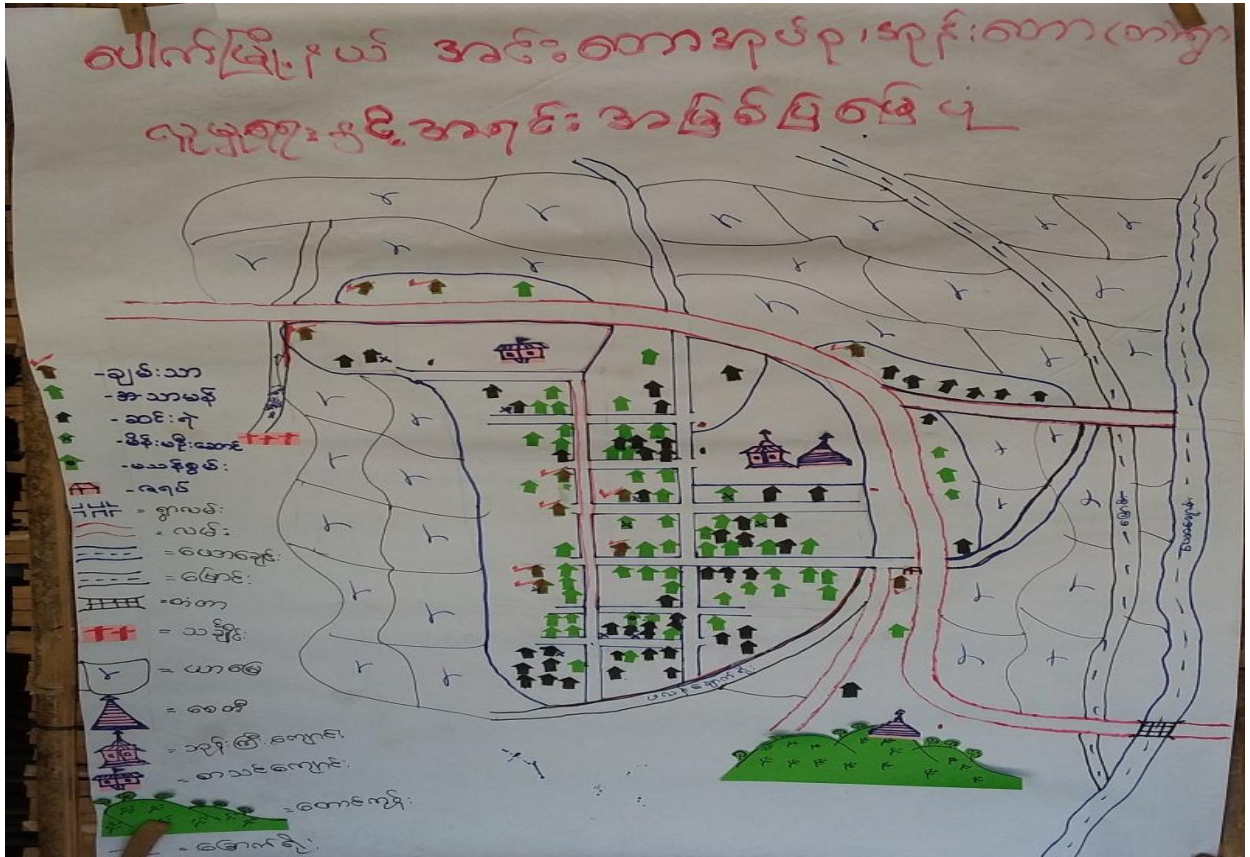 ပေါက်မြို့နယ် အင်းတောအုပ်စု၊ အုန်းတော(တ)ရွာ
လူမှုရေးနှင့် အရင်းအမြစ်ပြမြေပုံ
-ချမ်းသာ
-အသာမန်
-ဆင်းရဲ
-မိန်းမဦးဆောင်
-မသန်စွမ်း
-ဇရပ်
= ရွာလမ်း
= လမ်း
=ယောချောင်း
=မြောင်း
=တံတာ
= သင်္ချိုင်း
= ယာမြေ
= စေတီ
= ဘုန်းကြီးကျောင်း
= စာသင်ကျောင်း
=တောင်ကုန်း
= မြောက်ရိုး